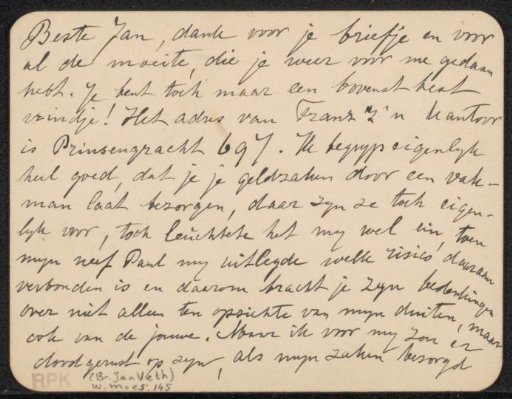 Beste Jan, dank voor je briefje en voor
al de moeite, die je weer voor me gedaan
hebt. Je bent toch maar een bovenst best
vrindje! Het adres van Franz z'n kantoor
is Prinsengracht 697. Ik begryp eigenlyk
heel goed, dat je je geldzaken door een vak-
man laat bezorgen, daar zyn ze toch eigen-
lyk voor, toch leuchtete het my wel ein, toen
myn neef Paul my uitlegde welk risico daaraan
verbonden is en daarom bracht je zyn bedenkingen
over niet alleen ten opzichte van myn duiten, maar
ook van de jouwe. Maar ik voor my zou er
doodgerust op zyn, als myn zaken bezorgd
RPK
(B. Jan Veth)
W. Moes. 145